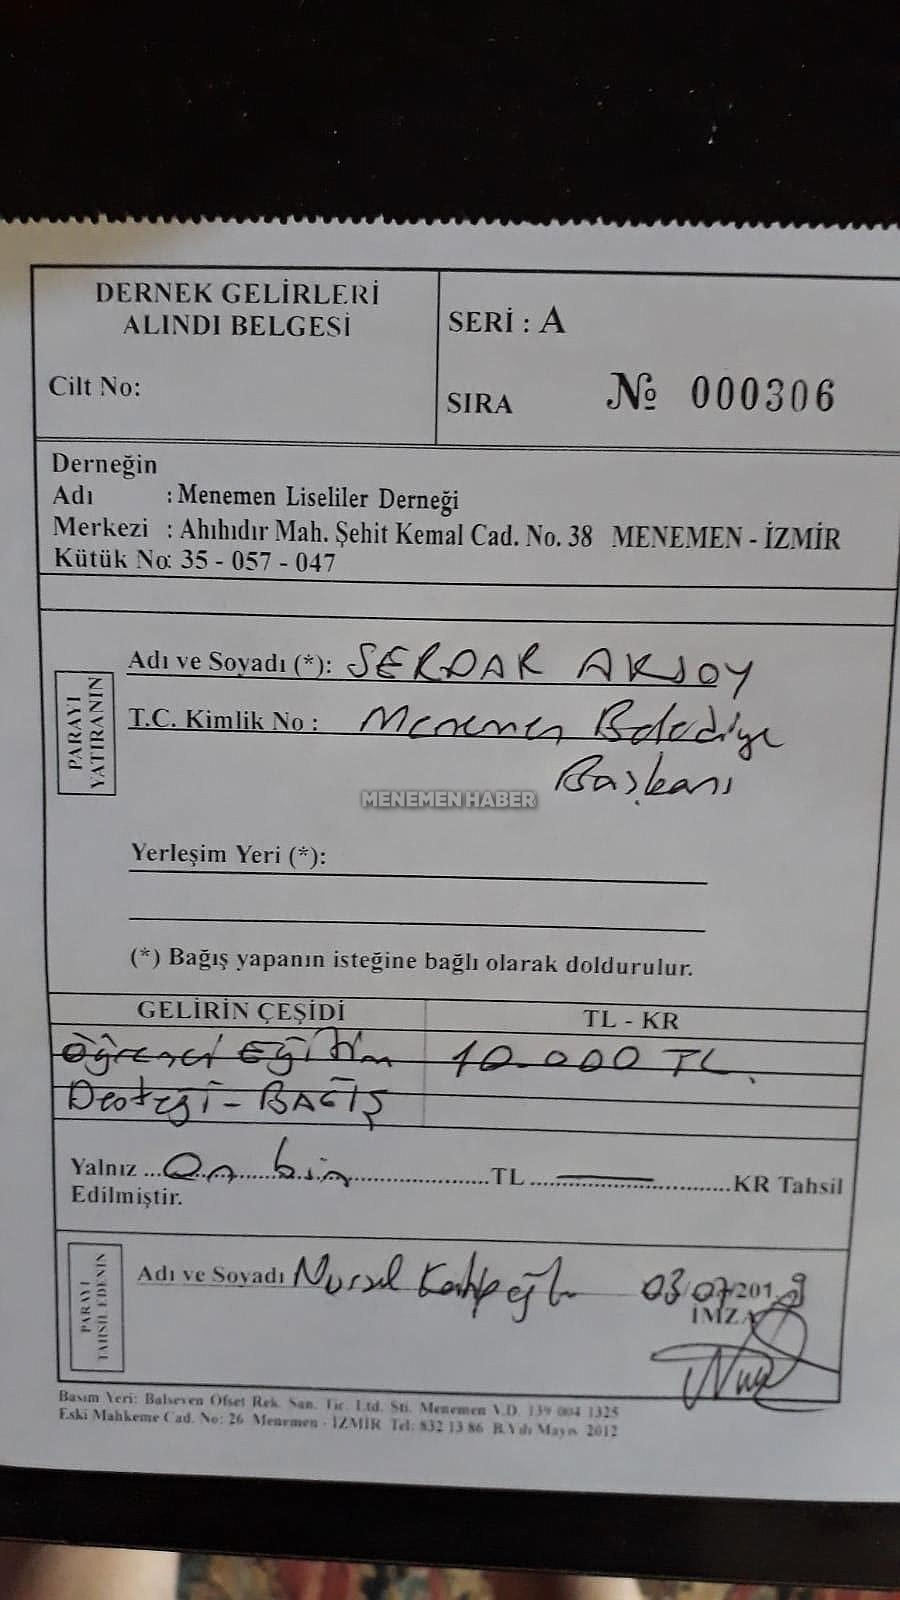 DERNEK GELİRLERİ
ALINDI BELGESİ
Cilt No:
SERİ : A
SIRA № 000306
Derneğin
Adı : Menemen Liseliler Derneği
Merkezi : Ahıhıdır Mah. Şehit Kemal Cad. No. 38 MENEMEN - İZMİR
Kütük No: 35 - 057 - 047
PARAYI
YATIRANIN
Adı ve Soyadı (*): SERDAR AKSOY
T.C. Kimlik No : Menemen Belediye
Başkanı
MENEMEN HABER
Yerleşim Yeri (*):
(*) Bağış yapanın isteğine bağlı olarak doldurulur.
GELİRİN ÇEŞİDİ TL - KR
Öğrenci Eğitim 10.000 TL.
Desteği - BAĞIŞ
Yalnız ... On bin ... TL ... KR Tahsil
Edilmiştir.
PARAYI
TAHSİL EDENİN
Adı ve Soyadı Nursel 03/07/2019
İMZA
Basım Yeri: Balseven Ofset Rek. San. Tic. Ltd. Sti. Menemen V.D. 139 004 1325
Eski Mahkeme Cad. No: 26 Menemen - İZMİR Tel: 832 13 86 B.Yılı Mayıs 2012